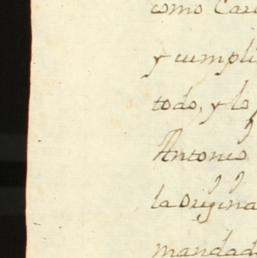 como Car
y cumpli
todo, y lo
Antonio
la Origina
mandad